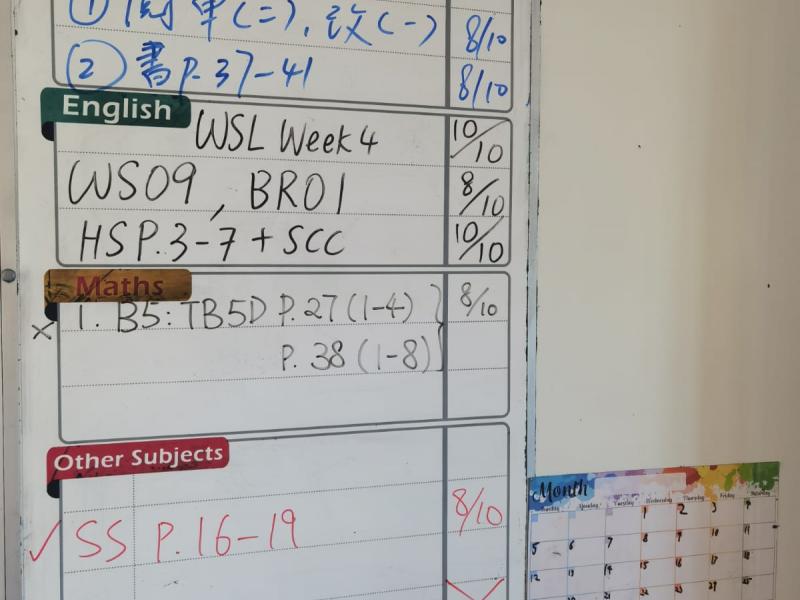 ① 閱單(二), 改(一) 8/10
② 書P.37-41 8/10
English
WSL Week 4 10/10
WS09, BR01 8/10
HSP.3-7 + SCC 10/10
Maths
× 1. B5: TB5D P.27 (1-4) 8/10
P. 38 (1-8)
Other Subjects
✓ SS P.16-19 8/10
Month
Monday Tuesday Wednesday Thursday Friday Saturday
1 2 3 4
5 6 7 8 9 10 11
12 13 14 15 16 17 18